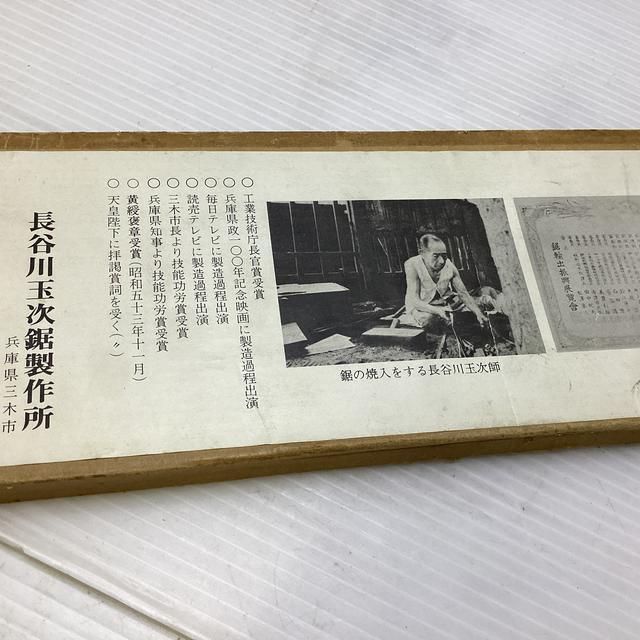 ○ 工業技術庁長官賞受賞
○ 兵庫県政一〇〇年記念映画に製造過程出演
○ 毎日テレビに製造過程出演
○ 読売テレビに製造過程出演
○ 三木市長より技能功労賞受賞
○ 兵庫県知事より技能功労賞受賞
○ 黄綬褒章受賞(昭和五十二年十一月)
○ 天皇陛下に拝謁賞詞を受く(〃)
長谷川玉次鋸製作所
兵庫県三木市
鋸の焼入をする長谷川玉次師